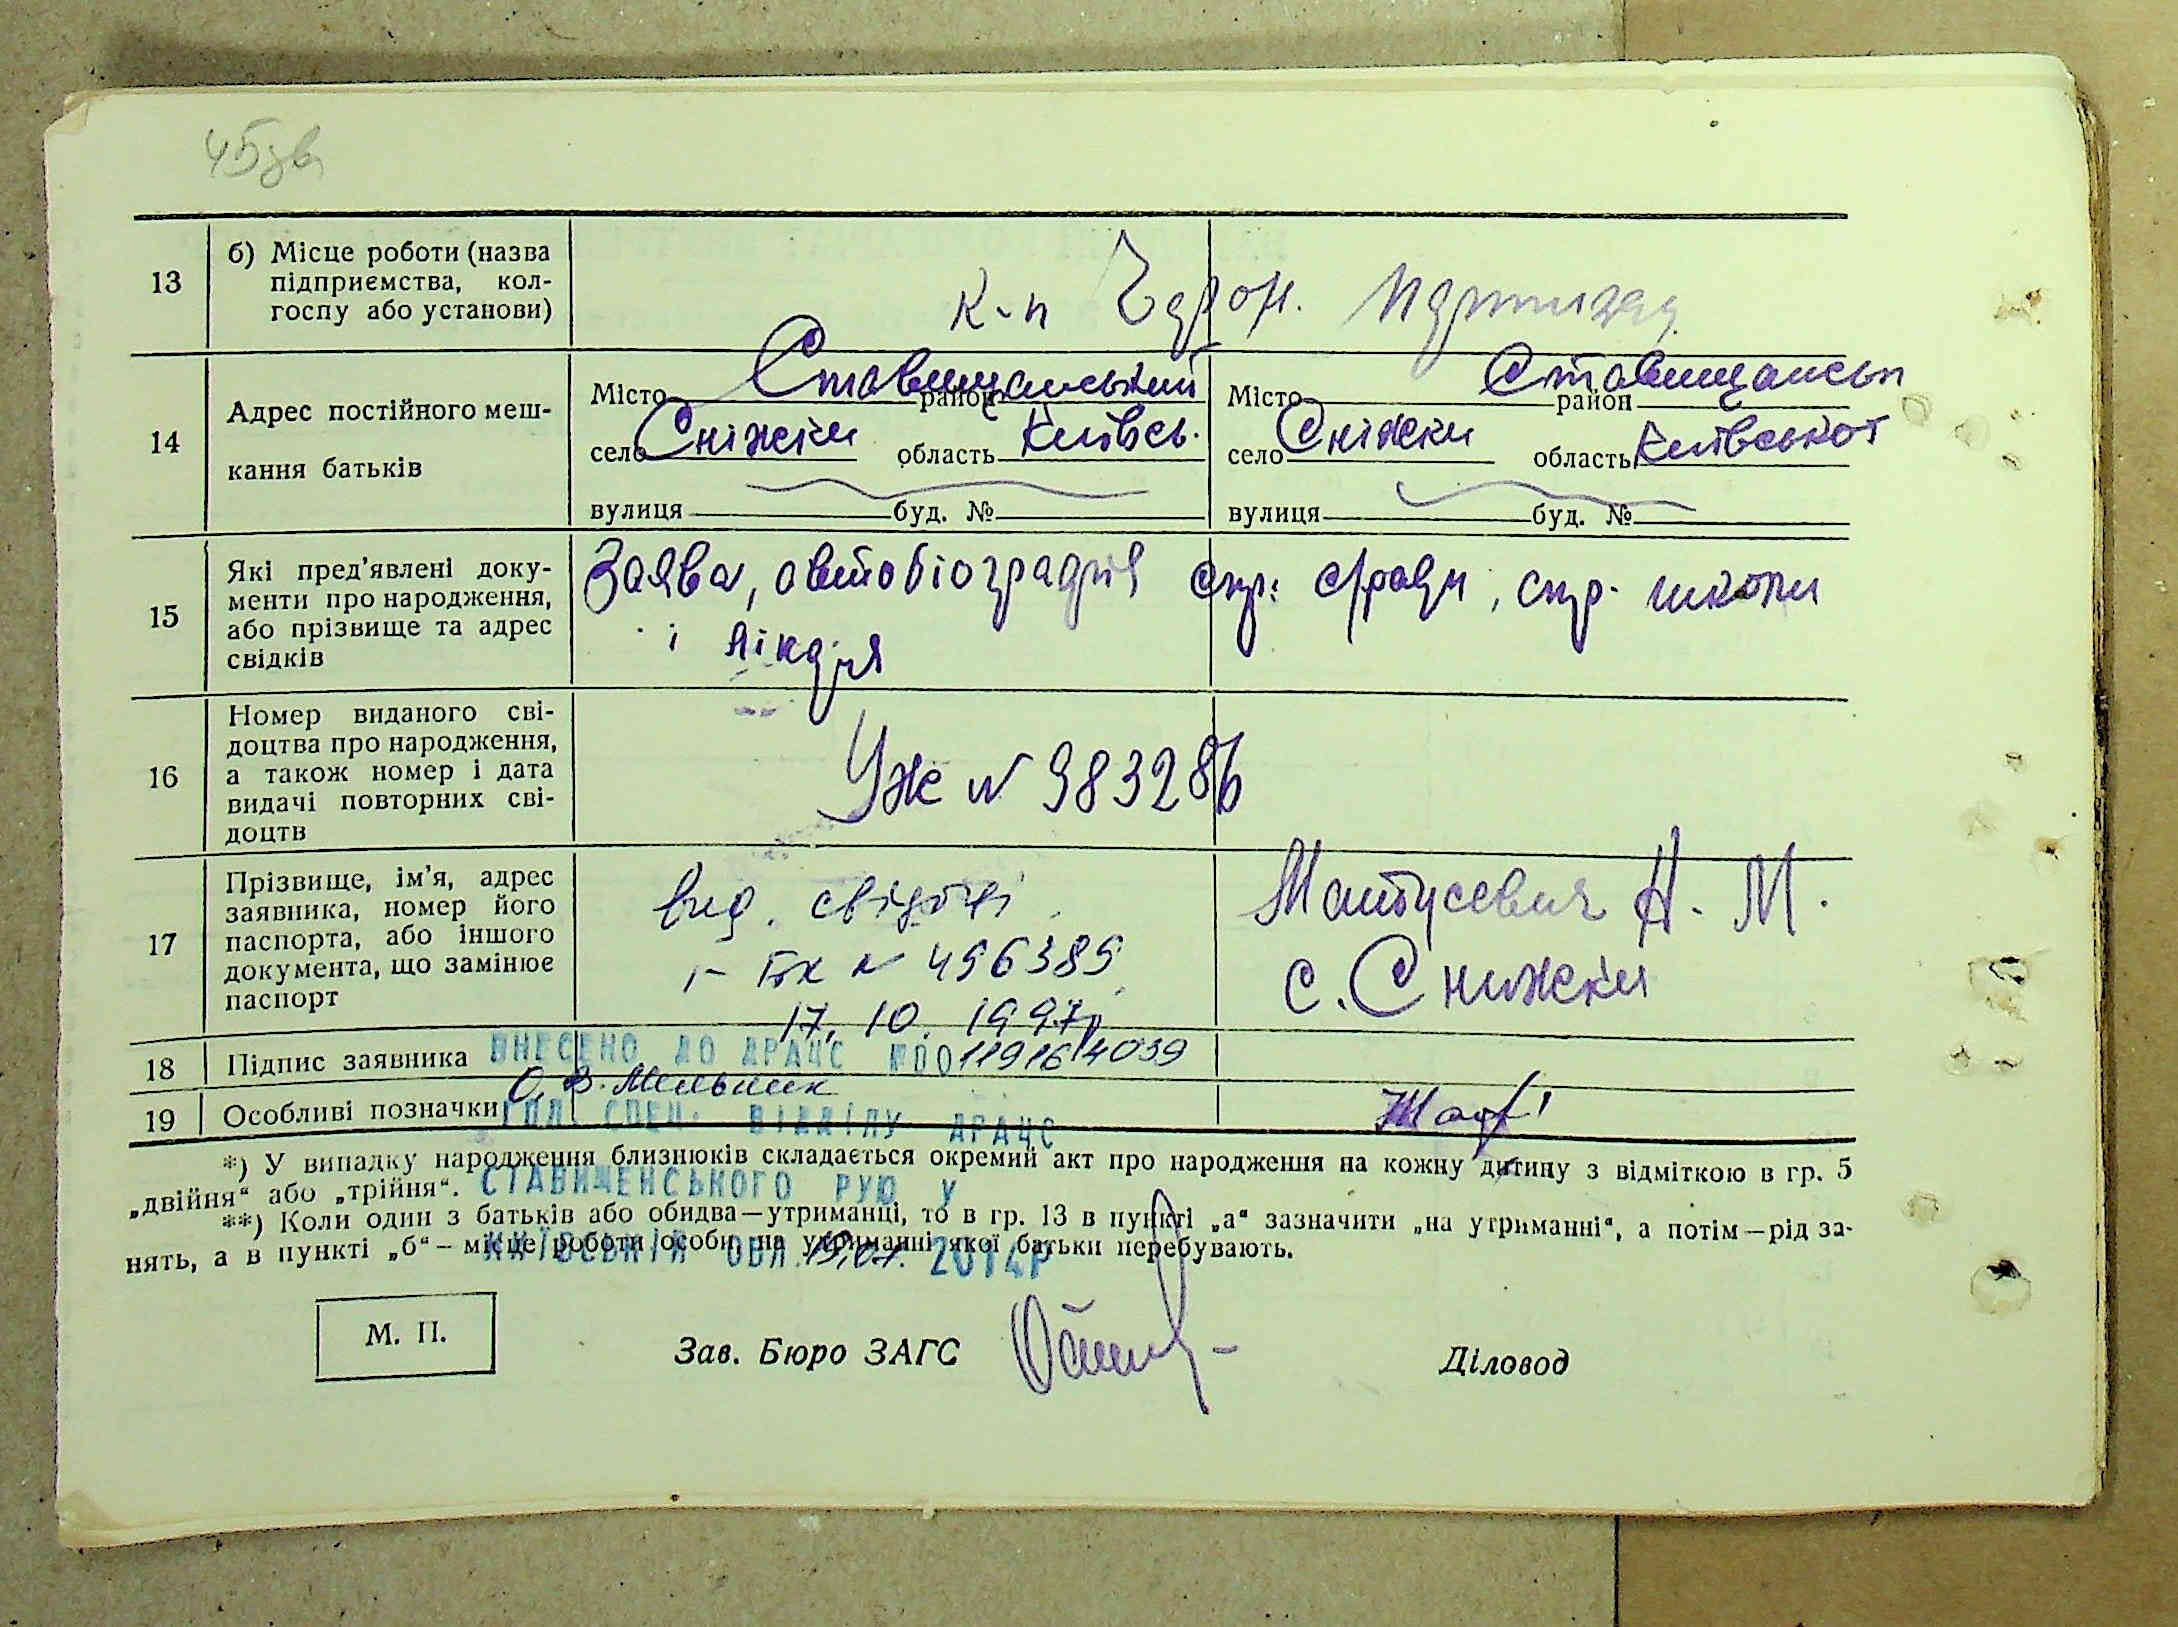 45зв
13 б) Місце роботи (назва
підприємства, кол-
госпу або установи)
к-п Червон. партизан
14 Адрес постійного меш-
кання батьків
Місто район Ставищанський
село Сніжки область Київсь.
вулиця буд. №
Місто район Ставищанськ
село Сніжки область Київської
вулиця буд. №
15 Які пред'явлені доку-
менти про народження,
або прізвище та адрес
свідків
Заява, автобіографія спр. с/ради, спр. школи
і лікаря
16 Номер виданого сві-
доцтва про народження,
а також номер і дата
видачі повторних сві-
доцтв
УЖ № 983286
17 Прізвище, ім'я, адрес
заявника, номер його
паспорта, або іншого
документа, що замінює
паспорт
вид. свідоц
I-БК № 496389
17.10.1997р
Матусевич Н. М.
с. Снижки
18 Підпис заявника
ВНЕСЕНО ДО ДРАЦС №00119164039
О.В. Мельник
19 Особливі позначки
ГОЛ. СПЕЦ. ВІДДІЛУ ДРАЦС
*) У випадку народження близнюків складається окремий акт про народження на кожну дитину з відміткою в гр. 5
„двійня“ або „трійня“.
СТАВИЩЕНСЬКОГО РУЮ У
**) Коли один з батьків або обидва—утриманці, то в гр. 13 в пункті „а“ зазначити „на утриманні“, а потім—рід за-
нять, а в пункті „б“ – місце роботи особи, на утриманні якої батьки перебувають.
КИЇВСЬКІЙ ОБЛ. 2014Р
М. П.
Зав. Бюро ЗАГС
Діловод